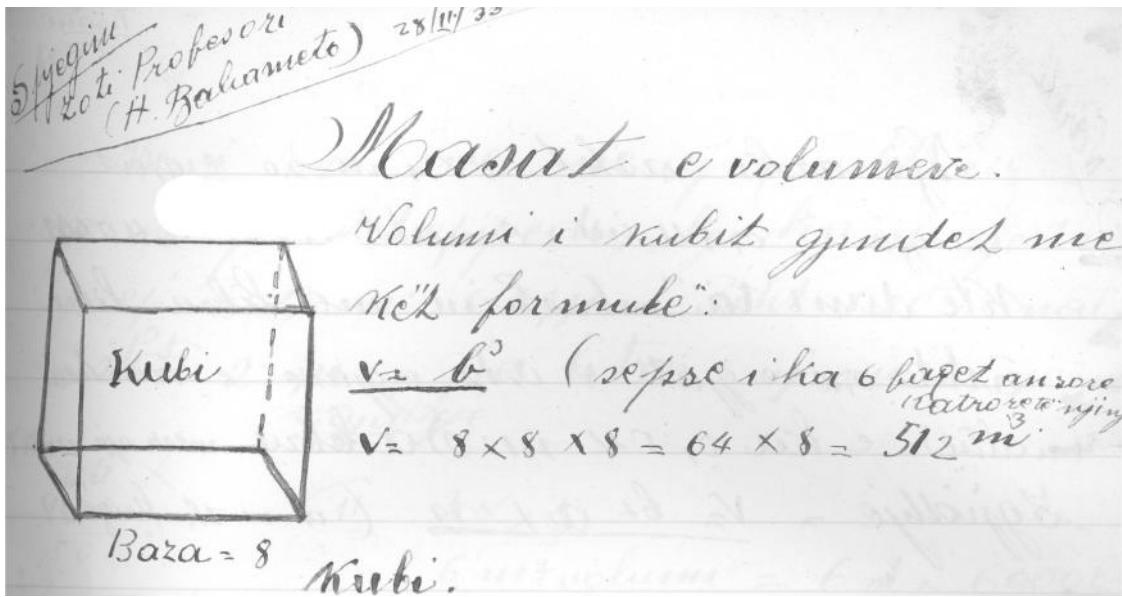 Spjegim
zoti Profesori
(H. Bahameto) 28/III/33
Masat e volumeve.
Volumi i kubit gjindet me
Kët formulë:
Kubi
v= b³ (sepse i ka 6 faqet anësore
katrore të
v= 8 x 8 x 8 = 64 x 8 = 512 m³
Baza = 8
Kubi.